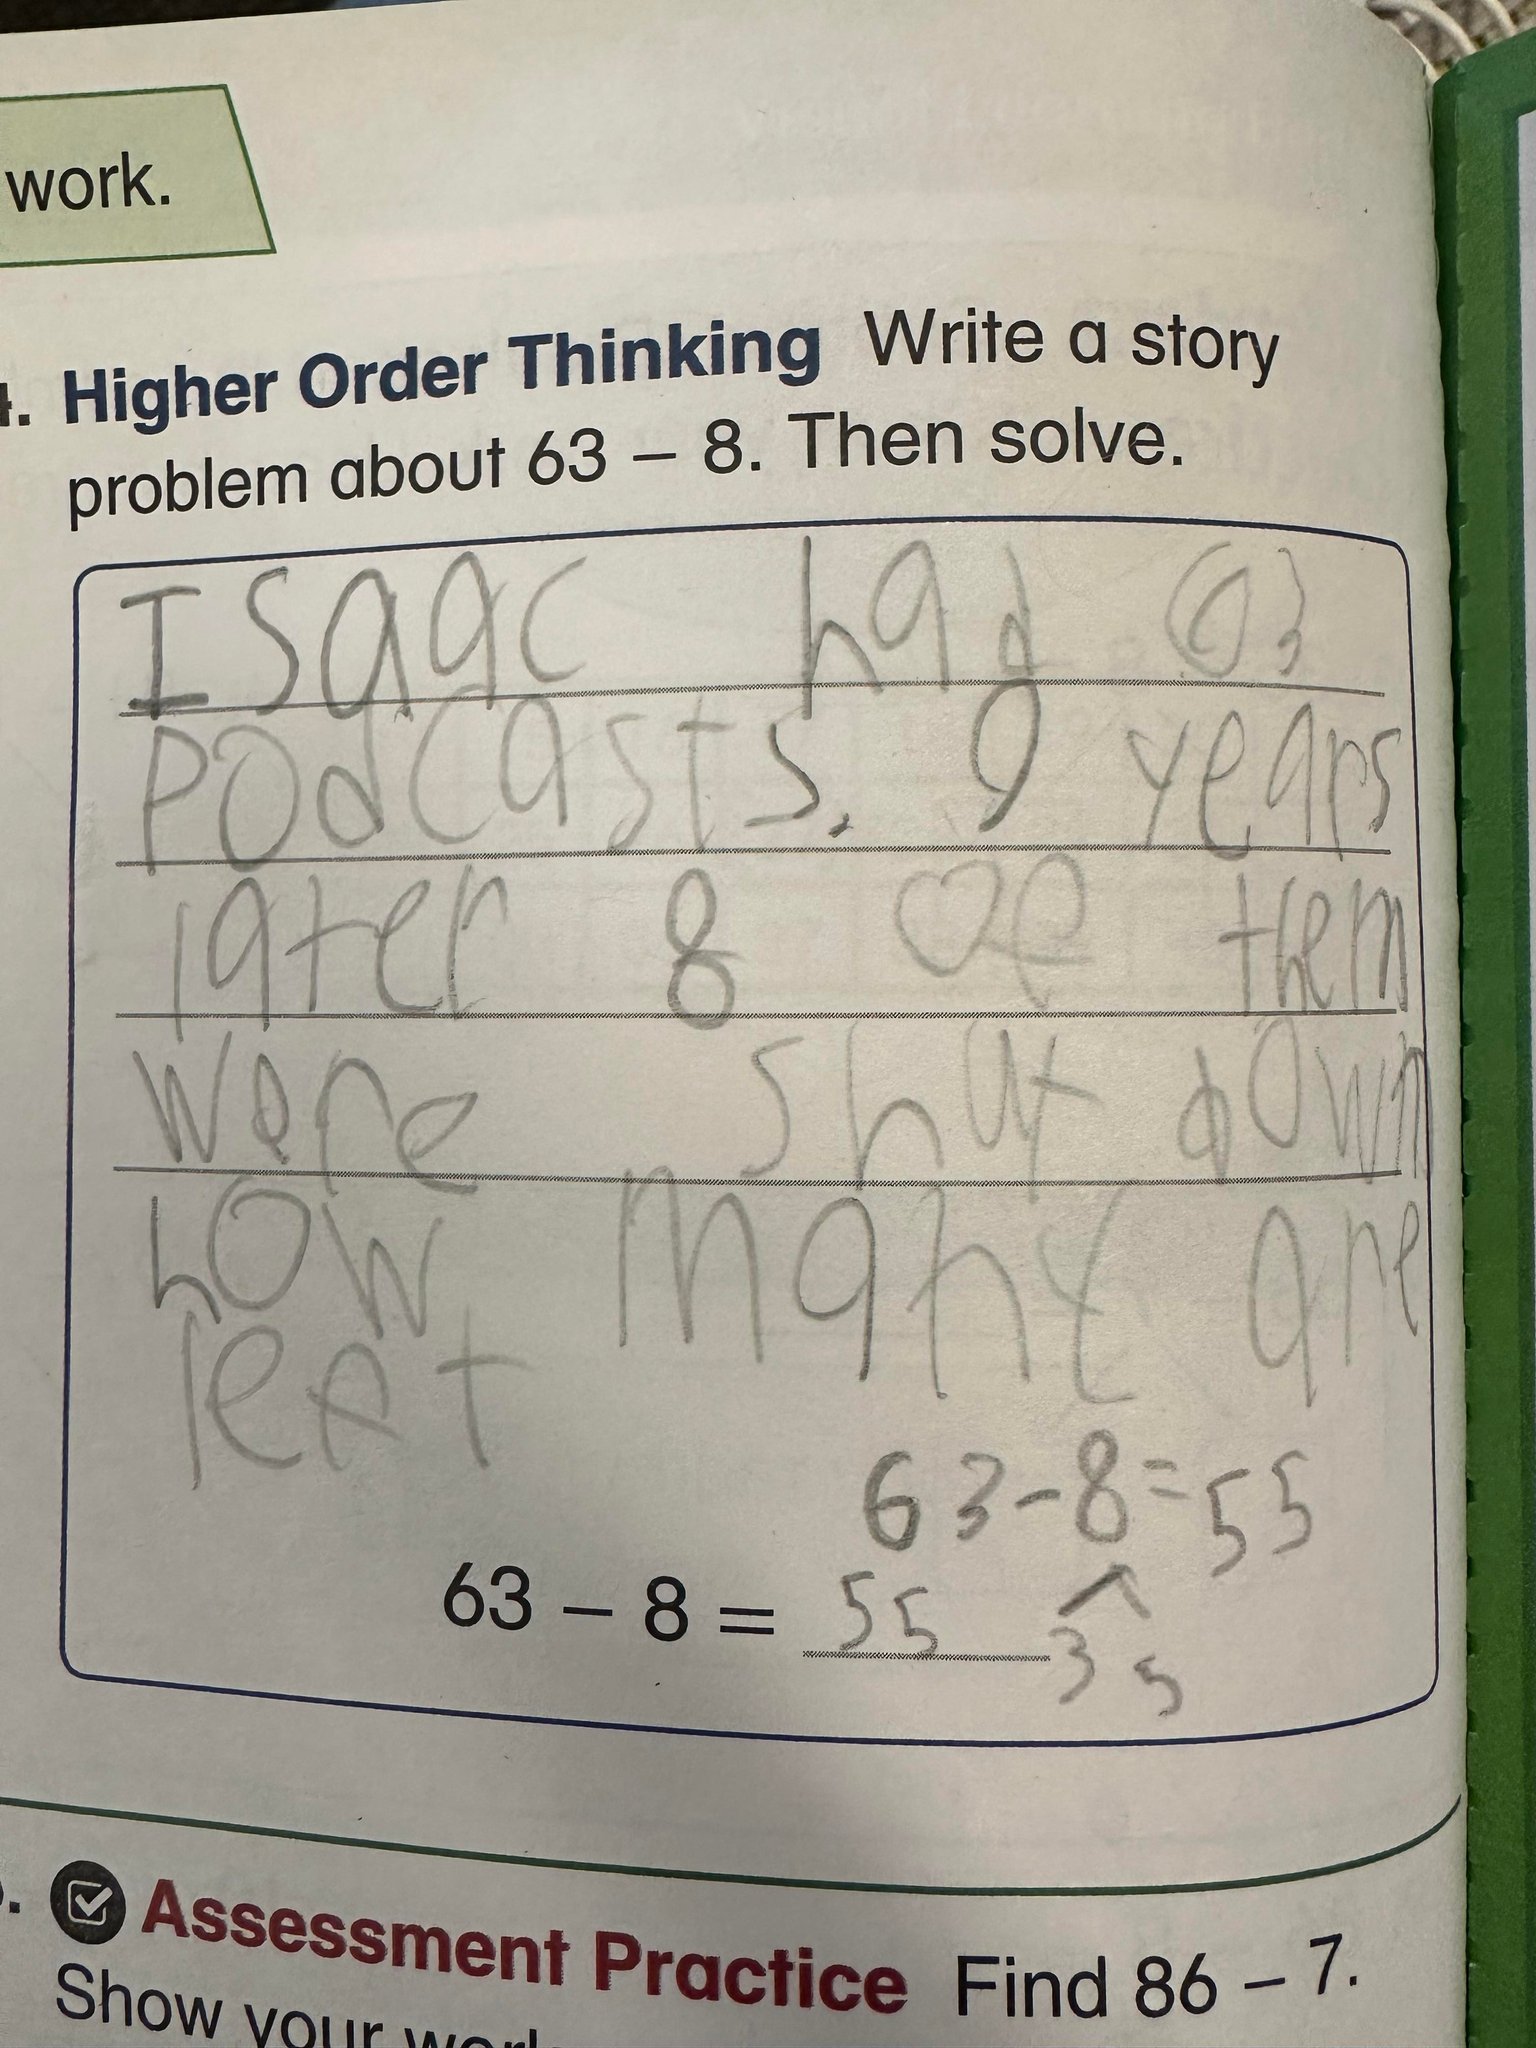 work.
4. Higher Order Thinking Write a story
problem about 63 – 8. Then solve.
Isaac had 63
Podcasts. 9 years
later 8 of them
were shut down
how many are
left
63-8=55
63 – 8 = 55
3 5
Assessment Practice Find 86 – 7.
Show your work